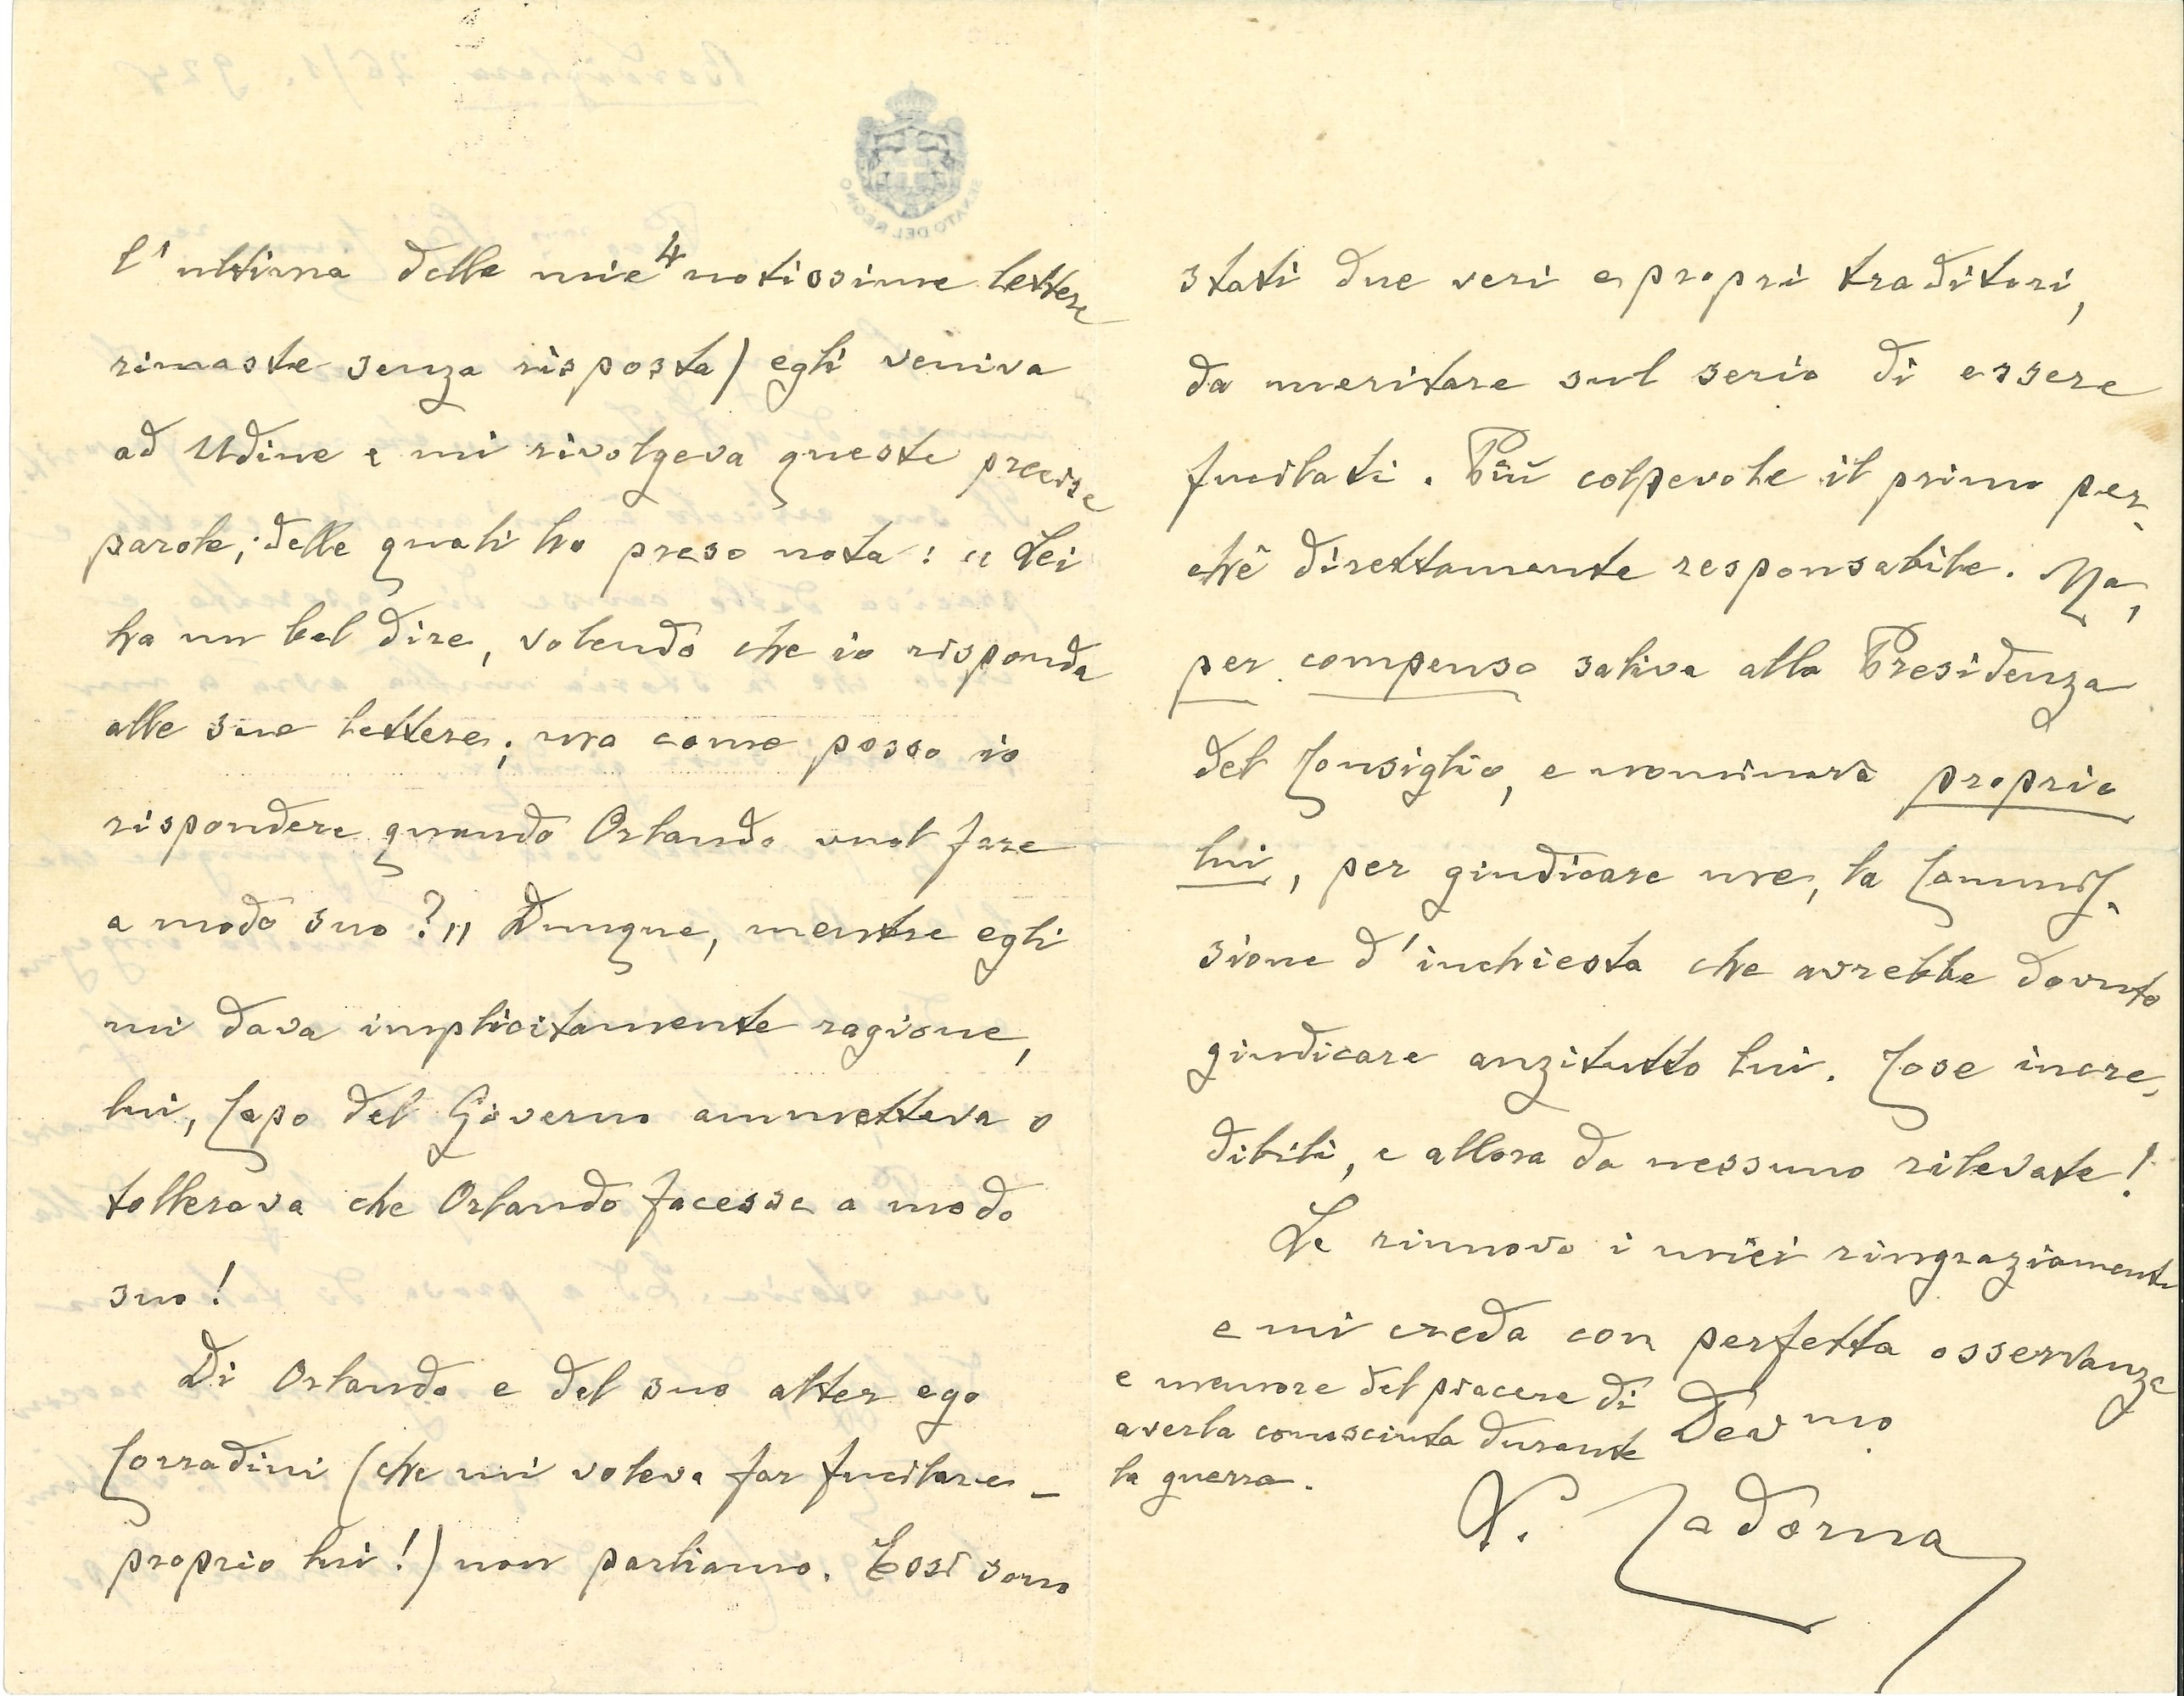 l'ultima delle mie 4 notissime lettere
rimaste senza risposta) egli veniva
ad Udine e mi rivolgeva queste precise
parole, delle quali ho preso nota: „ Lei
ha un bel dire, volendo che io risponda
alle sue lettere; ma come posso io
rispondere quando Orlando vuol fare
a modo suo?„ Dunque, mentre egli
mi dava implicitamente ragione,
lui, Capo del Governo ammetteva o
tollerava che Orlando facesse a modo
suo!
Di Orlando e del suo alter ego
Corradini (che mi voleva far fucilare –
proprio lui!) non parliamo. Essi sono
stati due veri e propri traditori,
da meritare sul serio di essere
fucilati. Più colpevole il primo per-
chè direttamente responsabile. Ma,
per compenso saliva alla Presidenza
del Consiglio, e nominava proprio
lui, per giudicare me, la Commis-
sione d'inchiesta che avrebbe dovuto
giudicare anzitutto lui. Cose incre-
dibili, e allora da nessuno rilevate!
Le rinnovo i miei ringraziamenti
e mi creda con perfetta osservanza
e memore del piacere di
averla conosciuta durante
la guerra.
Dev mo
L. Cadorna
SENATO DEL REGNO
Bordighera 26/1. 928